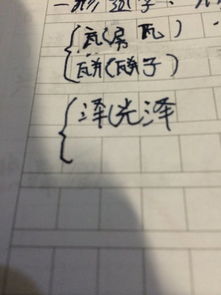 一形近字、
瓦(房瓦)
瓶(瓶子)
泽(光泽